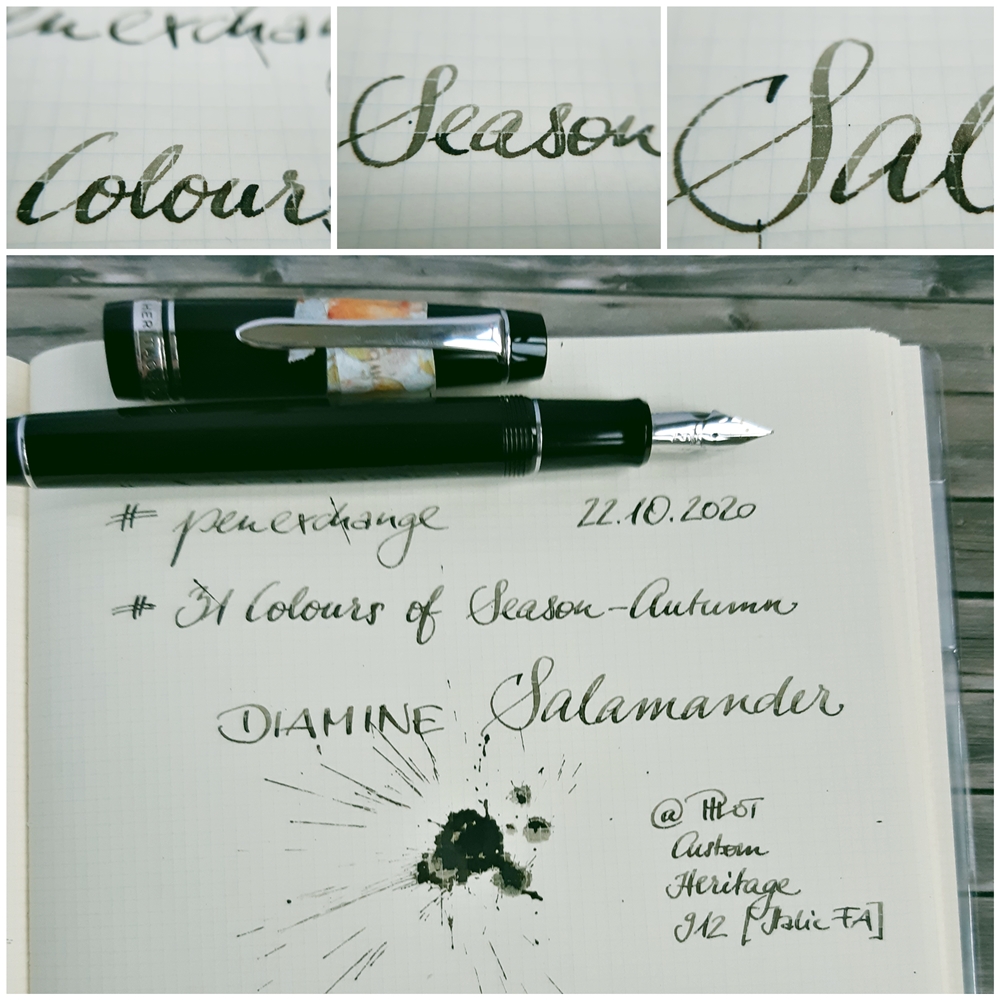 penexchan
Colours
Season
Sal
HER
# penexchange 22.10.2020
# 31 Colours of Season-Autumn
DIAMINE Salamander
@ PILOT
Custom
Heritage
912 [Italic FA]